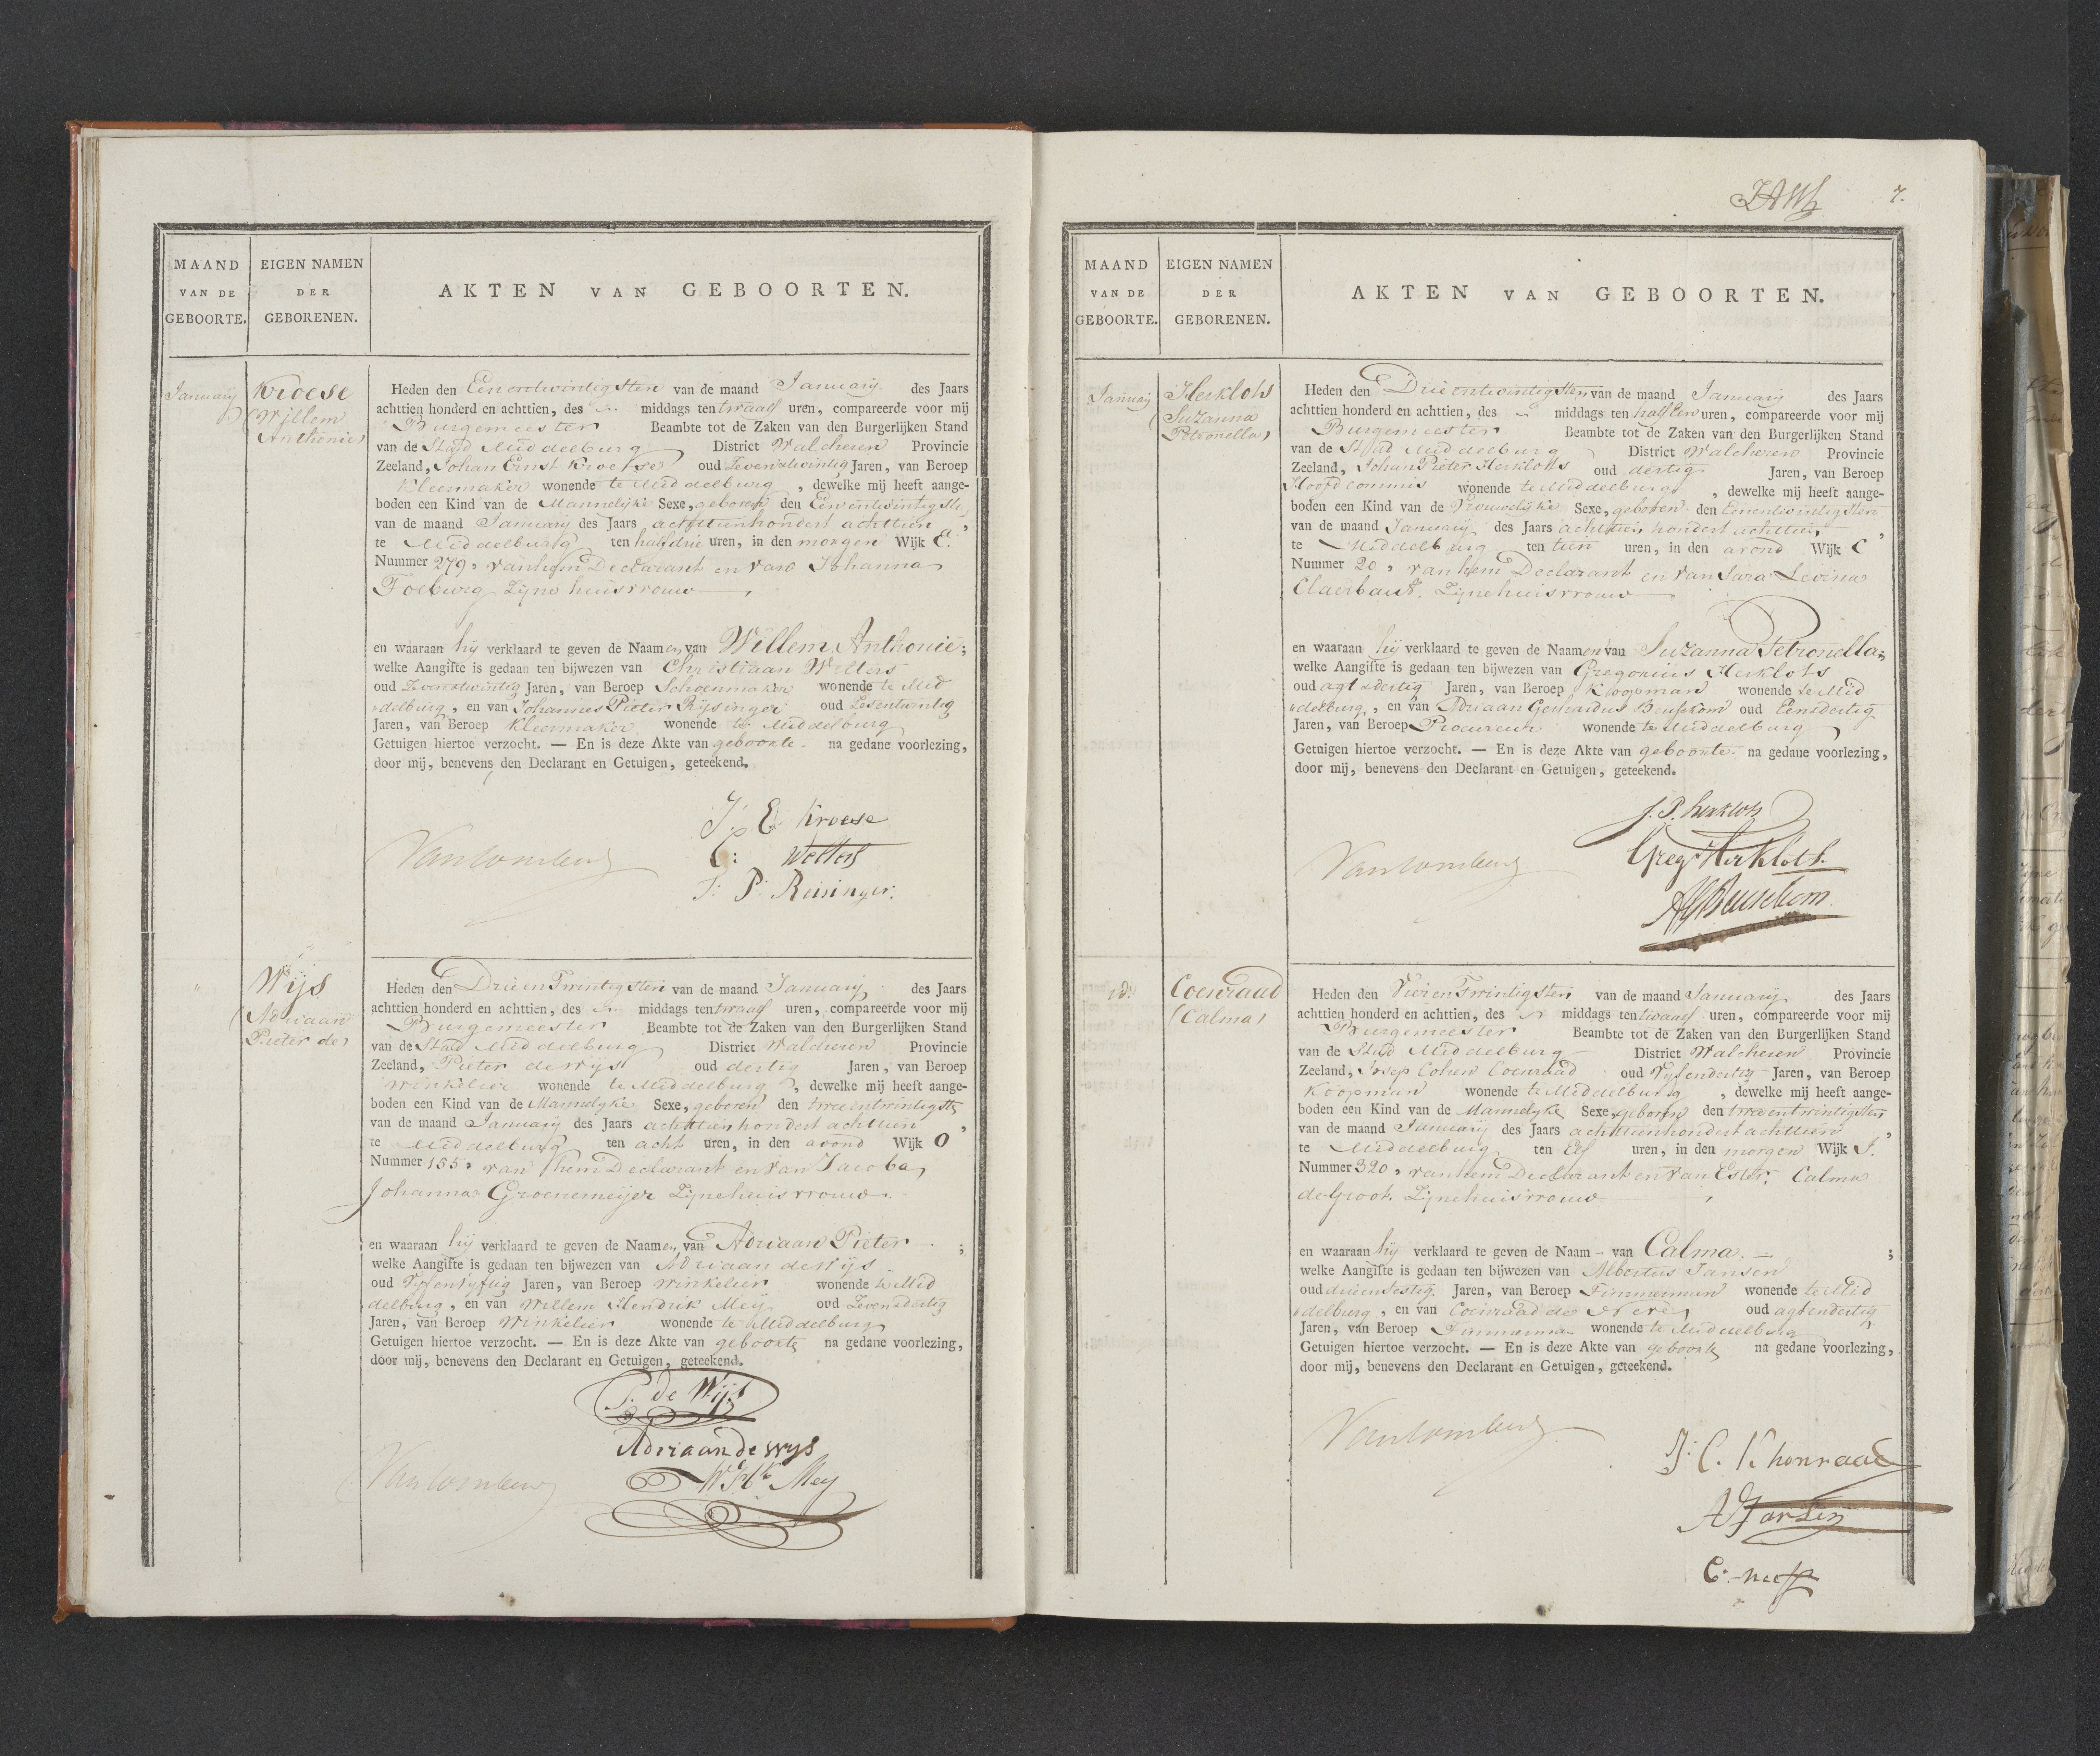 MAAND
VAN DE
GEBOORTE.
EIGEN NAMEN
DER
GEBORENEN.
AKTEN VAN GEBOORTEN.
Januarij
Kroese
(Willem
Anthonie)
Heden den Eenentwintigsten van de maand Januarij des Jaars
achttien honderd en achttien, des middags ten twaalf uren, compareerde voor mij
Burgemeester Beambte tot de Zaken van den Burgerlijken Stand
van de Stad Middelburg District Walcheren Provincie
Zeeland, Johan Ernst Kroese oud Zevenentwintig Jaren, van Beroep
Kleermaker wonende te Middelburg, dewelke mij heeft aange-
boden een Kind van de Mannelijke Sexe, geboren den Eenentwintigste
van de maand Januarij des Jaars achttienhondert achttien,
te Middelburg ten half drie uren, in den morgen Wijk E.
Nummer 279, van hem Declarant en van Johanna
Foeburg Zijne huisvrouw,
en waaraan hij verklaard te geven de Naamen van Willem Anthonie;
welke Aangifte is gedaan ten bijwezen van Christiaan Welters
oud Zevenentwintig Jaren, van Beroep Schoenmaker wonende te Mid
delburg, en van Johannes Pieter Rijsinger oud Zesentwintig
Jaren, van Beroep Kleermaker wonende te Middelburg
Getuigen hiertoe verzocht. — En is deze Akte van geboorte. na gedane voorlezing,
door mij, benevens den Declarant en Getuigen, geteekend.
J. E Kroese
C: Welters
J: P: Reisinger:
Wijs
(Adriaan
Pieter de)
Heden den Drieentwintigsten van de maand Januarij des Jaars
achttien honderd en achttien, des middags ten twaalf uren, compareerde voor mij
Burgemeester Beambte tot de Zaken van den Burgerlijken Stand
van de Stad Middelburg District Walcheren Provincie
Zeeland, Pieter de Wijs oud dertig Jaren, van Beroep
Winkelier wonende te Middelburg, dewelke mij heeft aange-
boden een Kind van de Mannelyke Sexe, geboren den tweeentwintigste
van de maand Januarij des Jaars achttienhondert achttien,
te Middelburg ten acht uren, in den avond Wijk O
Nummer 155, van hem Declarant en van Jacoba
Johanna Groenemeijer Zijne huisvrouw.
en waaraan hij verklaard te geven de Naamen van Adriaan Pieter;
welke Aangifte is gedaan ten bijwezen van Adriaan de Wijs
oud Vyfenvyftig Jaren, van Beroep Winkelier wonende te Mid
delburg, en van Willem Hendrik Meij oud Zevenendertig
Jaren, van Beroep Winkelier wonende te Middelburg
Getuigen hiertoe verzocht. — En is deze Akte van geboorte na gedane voorlezing,
door mij, benevens den Declarant en Getuigen, geteekend.
P. de Wijs
Adriaan de wys
Mey
7.
MAAND
VAN DE
GEBOORTE.
EIGEN NAMEN
DER
GEBORENEN.
AKTEN VAN GEBOORTEN.
Januarij
Herklots
(Suzanna
Petronella)
Heden den Drieentwintigsten van de maand Januarij des Jaars
achttien honderd en achttien, des middags ten half een uren, compareerde voor mij
Burgemeester Beambte tot de Zaken van den Burgerlijken Stand
van de Stad Middelburg District Walcheren Provincie
Zeeland, Johan Pieter Herklots oud dertig Jaren, van Beroep
Hoofd commis wonende te Middelburg, dewelke mij heeft aange-
boden een Kind van de Vrouwelijke Sexe, geboren den Eenentwintigsten
van de maand Januarij des Jaars achttien hondert achttien,
te Middelburg ten tien uren, in den avond Wijk C
Nummer 20, van hem Declarant en van Sara Levina
Claeibault, Zijne huisvrouw
en waaraan hij verklaard te geven de Naamen van Suzanna Petronella;
welke Aangifte is gedaan ten bijwezen van Gregorius Herklots
oud agt & dertig Jaren, van Beroep Koopman wonende te Mid
delburg, en van Adriaan Gerhardus Beusekom oud Eenendertig
Jaren, van Beroep Procureur wonende te Middelburg
Getuigen hiertoe verzocht. — En is deze Akte van geboorte na gedane voorlezing,
door mij, benevens den Declarant en Getuigen, geteekend.
J. P. Herklots
Greg Herklots.
AG Beusekom
id:
Coenraad
(Calma)
Heden den Vierentwintigsten van de maand Januarij des Jaars
achttien honderd en achttien, des middags ten twaalf uren, compareerde voor mij
Burgemeester Beambte tot de Zaken van den Burgerlijken Stand
van de Stad Middelburg District Walcheren Provincie
Zeeland, Josep Cohen Coenraad oud Vyfendertig Jaren, van Beroep
Koopman wonende te Middelburg, dewelke mij heeft aange-
boden een Kind van de Mannelyke Sexe, geboren den tweeentwintigsten
van de maand Januarij des Jaars achttienhondert achttien,
te Middelburg ten Elf uren, in den morgen Wijk J.
Nummer 320, van hem Declarant en van Ester Calma
de Groot. Zijne huisvrouw,
en waaraan hij verklaard te geven de Naam - van Calma. -;
welke Aangifte is gedaan ten bijwezen van Albertus Jansen
oud drieensestig Jaren, van Beroep Timmerman wonende te Mid
delburg, en van Coenraad de Neve oud agtendertig
Jaren, van Beroep Timmerman wonende te Middelburg
Getuigen hiertoe verzocht. — En is deze Akte van geboorte na gedane voorlezing,
door mij, benevens den Declarant en Getuigen, geteekend.
J: C. Khonraad
A Jansen